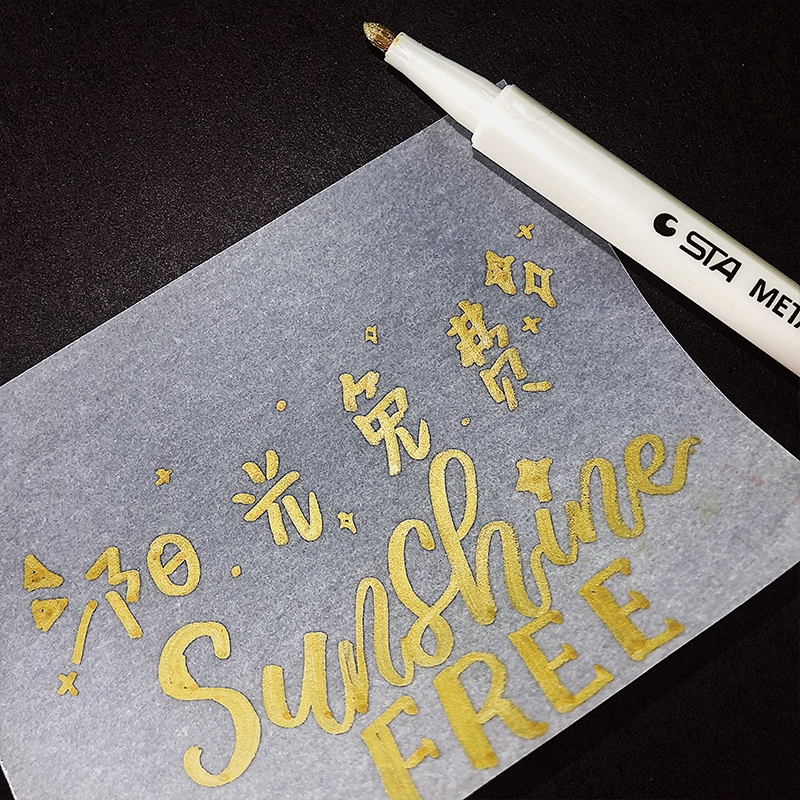 STA META
阳光免费
Sunshine
FREE